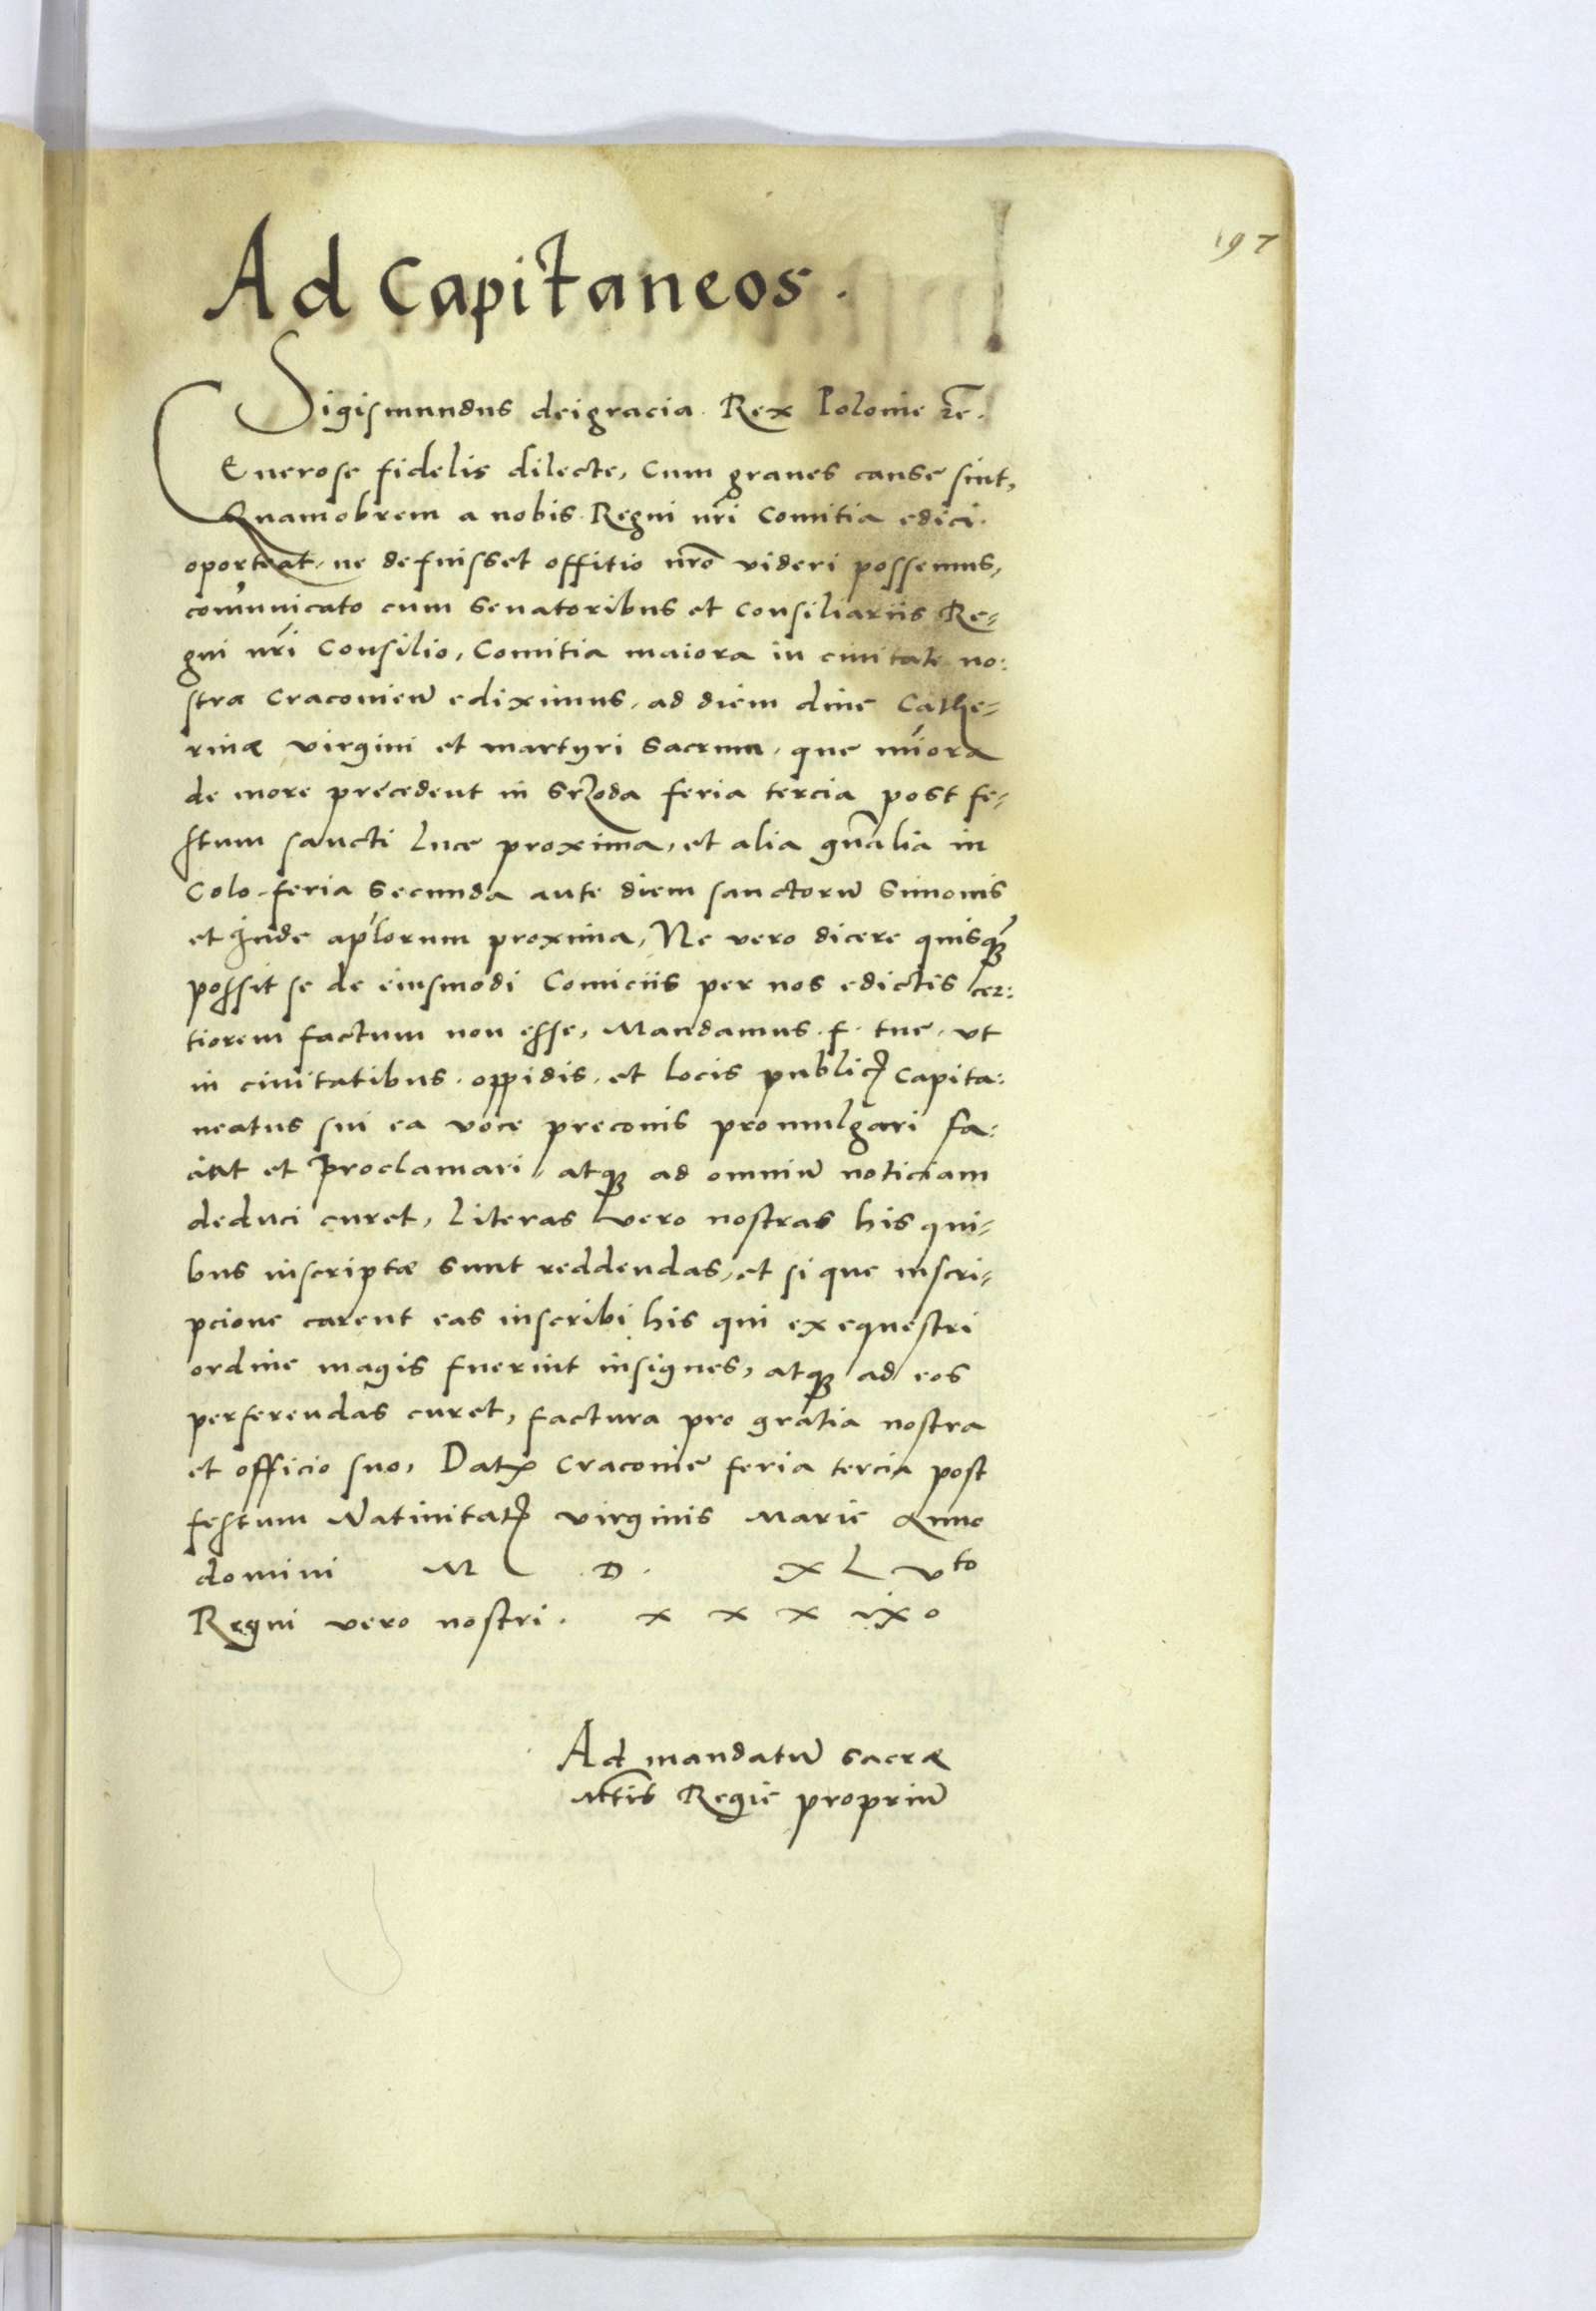 197
Ad Capitaneos.
Sigismundus dei gracia Rex Polonie etc.
Generose fidelis dilecte, Cum graues cause sint,
Quamobrem a nobis Regni nr̃i Comitia edici
oporteat, ne defuisset offitio nr̃o videri possemus,
com̃unicato cum Senatoribus et Consiliariis Re-
gni nr̃i Consilio, Comitia maiora in ciuitate no:
stra Cracouien̄ ediximus, ad diem diue Cathe-
rinæ virgini et martyri sacrum, que minora
de more precedent in Srzoda feria tercia post fe-
stum sancti Luce proxima, et alia gñalia in
Colo feria secunda ante diem sanctorū Simonis
et Jude ap̃lorum proxima, Ne vero dicere quisq̃
possit se de eiusmodi Comiciis per nos edictis cer:
tiorem factum non esse, Mandamus f. tue, vt
in ciuitatibus, oppidis, et locis publicꝭ Capita:
neatus sui ea voce preconis promulgari fa:
ciat et proclamari, atqꝫ ad omniū noticiam
deduci curet, Literas vero nostras his qui-
bus inscriptæ sunt reddendas, et si que inscri-
pcione carent eas inscribi his qui ex equestri
ordine magis fuerint insignes, atqꝫ ad eos
perferendas curet, factura pro gratia nostra
et officio suo, Datꝭ Cracouie feria tercia post
festum Natiuitatꝭ virginis Marie Anno
domini M D. XL Vto
Regni vero nostri. x x x ixo
Ad mandatū sacræ
Mt̃is Regie propriū